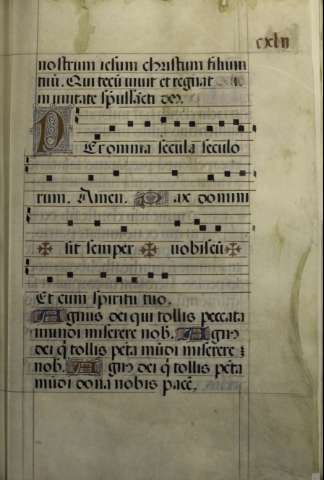 cxlii
nostrum iesum christum filium
tuū. Qui tecū uiuit et regnat
in unitate sp̄ussācti de⁹.
Per omnia secula seculo
rum. Amen. Pax domini
✠ sit semper ✠ uobiscū ✠
Et cum spiritu tuo.
Agnus dei qui tollis peccata
mundi miserere nob. Agn⁹
dei q̄ tollis pc̄ta mūdi miserere
nob. Agn⁹ dei q̄ tollis pc̄ta
mūdi dona nobis pacē.